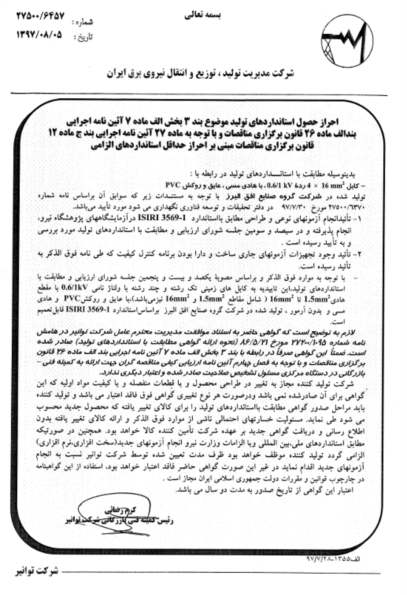 بسمه تعالی
شماره : ۲۷۵۰۰/۶۴۵۷
تاریخ : ۱۳۹۷/۰۸/۰۵
شرکت مدیریت تولید ، توزیع و انتقال نیروی برق ایران
احراز حصول استانداردهای تولید موضوع بند ۳ بخش الف ماده ۷ آئین نامه اجرایی
بندالف ماده ۲۶ قانون برگزاری مناقصات و با توجه به ماده ۲۷ آئین نامه اجرایی بند ج ماده ۱۲
قانون برگزاری مناقصات مبنی بر احراز حداقل استانداردهای الزامی
بدینوسیله مطابقت با استانداردهای تولید در رابطه با :
– کابل 4 × 16 mm² ردۀ 0.6/1 kV، با هادی مسی، عایق و روکش PVC
تولید شده در شرکت گروه صنایع افق البرز با توجه به مستندات زیر که سوابق آن براساس نامه شماره
۲۷۵۰۰/۶۳۷۰ مورخ ۹۷/۷/۳۰ در دفتر تحقیقات و توسعه فناوری نگهداری می شود مورد تأیید می‌باشد.
۱– تأئیدانجام آزمونهای نوعی و طراحی مطابق بااستاندارد ISIRI 3569-1 درآزمایشگاههای پژوهشگاه نیرو،
انجام پذیرفته و در سیصد و سومین جلسه شورای ارزیابی و مطابقت با استانداردهای تولید مورد بررسی
و به تأیید رسیده است .
۲– تأئید وجود تجهیزات آزمونهای جاری ساخت و دارا بودن برنامه کنترل کیفیت که طی نامه فوق الذکر به
تأئید رسیده است.
– با توجه به موارد فوق الذکر و براساس مصوبۀ یکصد و بیست و پنجمین جلسه شورای ارزیابی و مطابقت با
استانداردهای تولید،این تاییدیه به کابل های زمینی تک رشته و چند رشته با ولتاژ نامی 0.6/1kV با مقطع
هادی 1.5mm² تا 16mm² ( شامل مقاطع 1.5mm² و 16mm² نیزمی‌باشد)،با عایق و روکش PVC و هادی
مسی و بدون آرمور ، تولید شده در شرکت گروه صنایع افق البرز براساس استاندارد ISIRI 3569-1 قابل تعمیم
است.
لازم به توضیح است که گواهی حاضر به استناد موافقت مدیریت محترم عامل شرکت توانیر در هامش
نامه شماره ۲۷۲۰/۱۰۹۵ مورخ ۸۶/۵/۲۱ (نحوه ارائه گواهی مطابقت با استانداردهای تولید) صادر شده
است. ضمناً این گواهی صرفاً در رابطه با بند ۳ بخش الف ماده ۷ آیین نامه اجرایی بند الف ماده ۲۶ قانون
برگزاری مناقصات و با توجه به فصل چهارم آئین نامه ارزیابی کیفی مناقصه گران جهت ارائه به کمیته فنی –
بازرگانی در دستگاه مرکزی مسئول تشخیص صلاحیت صادر شده و اعتبار دیگری ندارد.
شرکت تولید کننده مجاز به تغییر در طراحی محصول و یا قطعات منفصله و یا کیفیت مواد اولیه که این
گواهی برای آن صادرشده نمی باشد ودرصورت هر نوع تغییری گواهی فوق فاقد اعتبار می باشد و تولید کننده
باید مراحل صدور گواهی مطابقت بااستانداردهای تولید را برای کالای تغییر یافته که محصول جدید محسوب
می شود طی نماید. مسئولیت خسارتهای احتمالی ناشی از موارد فوق الذکر و ارائه کالای تغییر یافته بدون
اطلاع رسانی و دریافت گواهی جدید بر عهده شرکت تأمین کننده کالا خواهد بود. همچنین در صورتیکه
مطابق استانداردهای ملی،بین المللی ویا الزامات وزارت نیرو انجام آزمونهای جدید(سخت افزاری،نرم افزاری)
الزامی گردد تولید کننده موظف خواهد بود ظرف مدت تعیین شده توسط شرکت توانیر نسبت به انجام
آزمونهای جدید اقدام نماید در غیر این صورت گواهی حاضر فاقد اعتبار خواهد بود. استفاده از این گواهینامه
در چارچوب قوانین و مقررات دولت جمهوری اسلامی ایران مجاز است .
اعتبار این گواهی از تاریخ صدور به مدت دو سال می باشد.
کرم رضائی
رئیس کمیته فنی بازرگانی شرکت توانیر
الف-۱۳۵۵-۹۷/۷/۲۸
شرکت توانیر